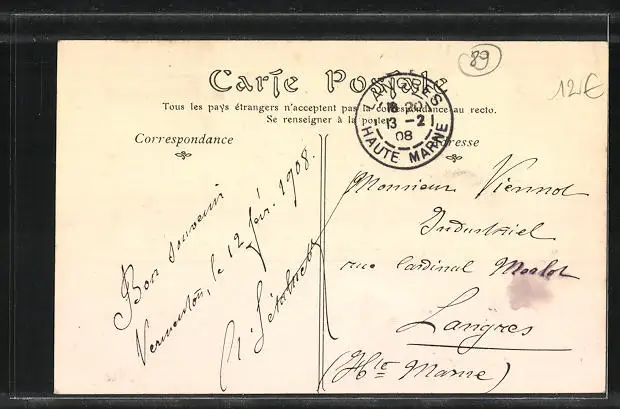 89
12€
Carte Postale
Tous les pays étrangers n'acceptent pas la correspondance au recto.
Se renseigner à la poste
Correspondance
Adresse
LANGRES
18 20
13 -2
08
HAUTE MARNE
Bon souvenir
le 12 fév. 1908.
Monsieur Viennot
Industriel
rue Cardinal Morlot
Langres
(Hte Marne)